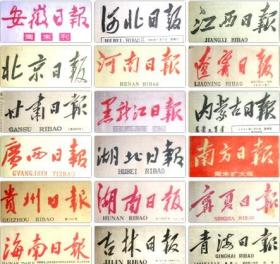 安徽日报
周末刊
河北日报
HEBEI RIBAO
江西日报
JIANGXI RIBAO
北京日报
河南日报
HENAN RIBAO
辽宁日报
LIAONING RIBAO
甘肃日報
GANSU RIBAO
黑龙江日报
内蒙古日报
廣西日报
GUANGXI RIBAO
湖北日报
HUBEI RIBAO
南方日报
周末扩大版
贵州日报
GUIZHOU RIBAO
湖南日报
HUNAN RIBAO
宁夏日报
NINGXIA RIBAO
海南日报
HAINAN RIBAO
吉林日报
JILIN RIBAO
青海日报
QINGHAI RIBAO